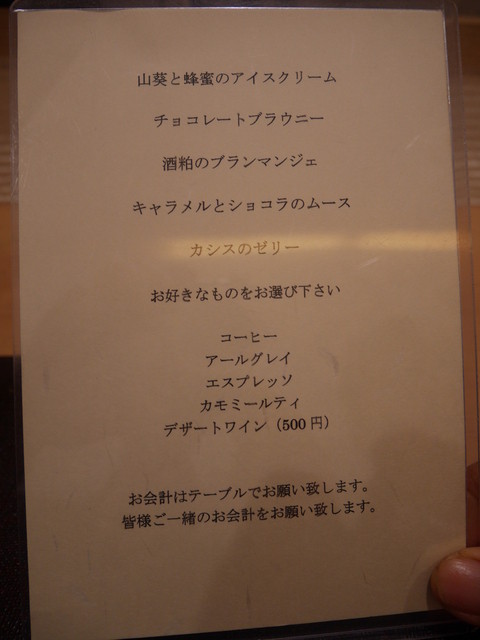 山葵と蜂蜜のアイスクリーム
チョコレートブラウニー
酒粕のブランマンジェ
キャラメルとショコラのムース
カシスのゼリー
お好きなものをお選び下さい
コーヒー
アールグレイ
エスプレッソ
カモミールティ
デザートワイン（500 円）
お会計はテーブルでお願い致します。
皆様ご一緒のお会計をお願い致します。